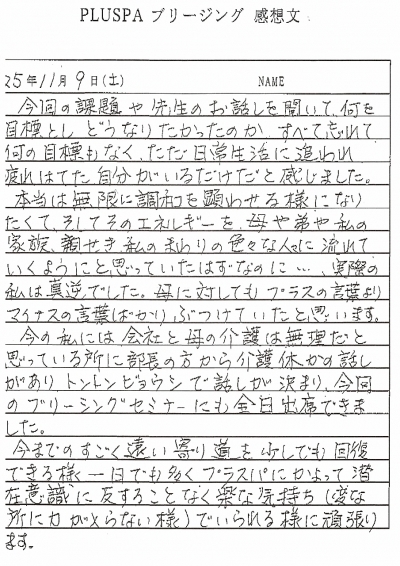 PLUSPA ブリージング 感想文
25年11月9日(土) NAME
今回の課題や先生のお話しを聞いて、何を
目標とし どうなりたかったのか、すべて忘れて
何の目標もなく、ただ日常生活に追われ
疲れはてた自分がいるだけだと感じました。
本当は無限に調和を顕わせる様になり
たくて、そしてそのエネルギーを、母や弟や私の
家族、親せき私のまわりの色々な人々に流れて
いくようにと思っていたはずなのに…、実際の
私は真逆でした。母に対してもプラスの言葉より
マイナスの言葉ばかり ぶつけていたと思います。
今の私には会社と母の介護は無理だと
思っている所に部長の方から介護休かの話し
があり トントンビョウシで話しが決まり、今回
のブリーシングセミナーにも全日出席できま
した。
今までのすごく遠い寄り道を少しでも回復
できる様 一日でも多く プラスパにかよって潜
在意識に反することなく楽な気持ち(変な
所に力が入らない様)でいられる様に頑張り
ます。